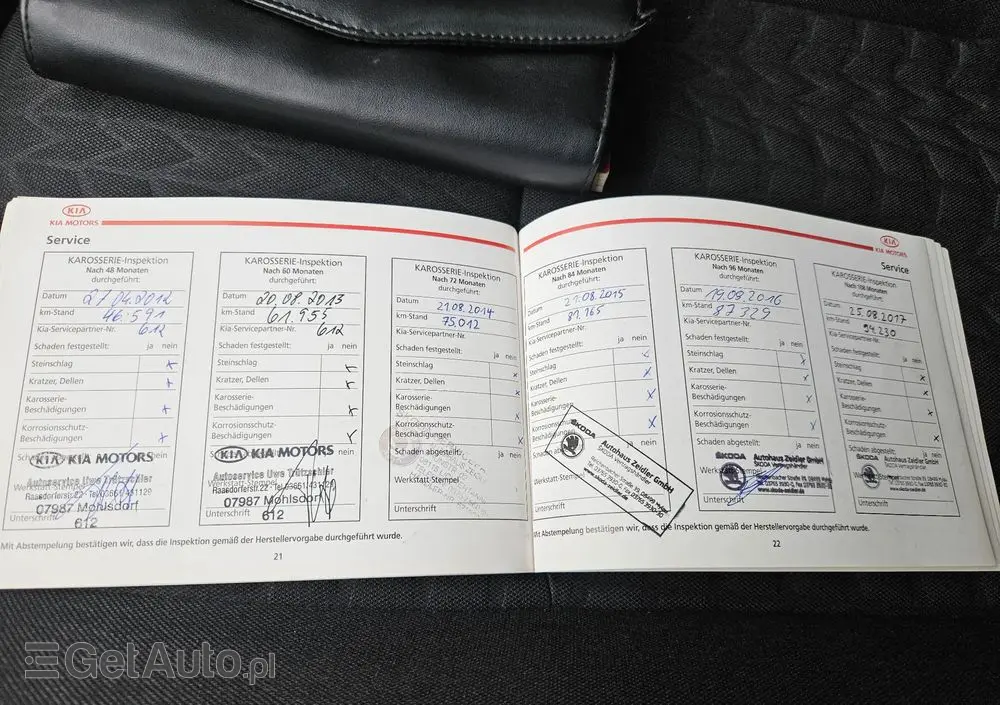 KIA
KIA MOTORS
Service
KAROSSERIE-Inspektion
Nach 48 Monaten
durchgeführt:
Datum 27.04.2012
km-Stand 46.591
Kia-Servicepartner-Nr. 612
Schaden festgestellt: ja nein
Steinschlag x
Kratzer, Dellen x
Karosserie-
Beschädigungen x
Korrosionsschutz-
Beschädigungen x
KIA KIA MOTORS
Autoservice Uwe Trützschler
Raasdorferstr.22
07987 Mohlsdorf
Unterschrift 612
KAROSSERIE-Inspektion
Nach 60 Monaten
durchgeführt:
Datum 20.08.2013
km-Stand 61.955
Kia-Servicepartner-Nr. 612
Schaden festgestellt: ja nein
Steinschlag x
Kratzer, Dellen x
Karosserie-
Beschädigungen x
Korrosionsschutz-
Beschädigungen x
KIA KIA MOTORS
Autoservice Uwe Trützschler
Werkstatt-Stempel
Raasdorferstr.22
07987 Mohlsdorf
Unterschrift 612
KAROSSERIE-Inspektion
Nach 72 Monaten
durchgeführt:
Datum 21.08.2014
km-Stand 75.012
Kia-Servicepartner-Nr.
Schaden festgestellt: ja nein
Steinschlag x
Kratzer, Dellen x
Karosserie-
Beschädigungen x
Korrosionsschutz-
Beschädigungen x
Schaden abgestellt: ja nein
Werkstatt-Stempel
Unterschrift
Mit Abstempelung bestätigen wir, dass die Inspektion gemäß der Herstellervorgabe durchgeführt wurde.
21
KIA
KIA MOTORS
Service
KAROSSERIE-Inspektion
Nach 84 Monaten
durchgeführt:
Datum 21.08.2015
km-Stand 81.765
Kia-Servicepartner-Nr.
Schaden festgestellt: ja nein
Steinschlag x
Kratzer, Dellen x
Karosserie-
Beschädigungen x
Korrosionsschutz-
Beschädigungen
ŠKODA
Autohaus Zeidler GmbH
ŠKODA Vertragshändler
www.skoda-zeidler.de
Werkstatt-Stempel
Unterschrift
KAROSSERIE-Inspektion
Nach 96 Monaten
durchgeführt:
Datum 19.08.2016
km-Stand 87.729
Kia-Servicepartner-Nr.
Schaden festgestellt: ja nein
Steinschlag x
Kratzer, Dellen x
Karosserie-
Beschädigungen x
Korrosionsschutz-
Beschädigungen x
Schaden abgestellt: ja nein
ŠKODA Autohaus Zeidler GmbH
ŠKODA Vertragshändler
www.skoda-zeidler.de
Unterschrift
KAROSSERIE-Inspektion
Nach 108 Monaten
durchgeführt:
Datum 25.08.2017
km-Stand 94.230
Kia-Servicepartner-Nr.
Schaden festgestellt: ja nein
Steinschlag x
Kratzer, Dellen x
Karosserie-
Beschädigungen x
Korrosionsschutz-
Beschädigungen x
Schaden abgestellt: ja nein
ŠKODA Autohaus Zeidler GmbH
ŠKODA Vertragshändler
www.skoda-zeidler.de
Unterschrift
Mit Abstempelung bestätigen wir, dass die Inspektion gemäß der Herstellervorgabe durchgeführt wurde.
22
GetAuto.pl